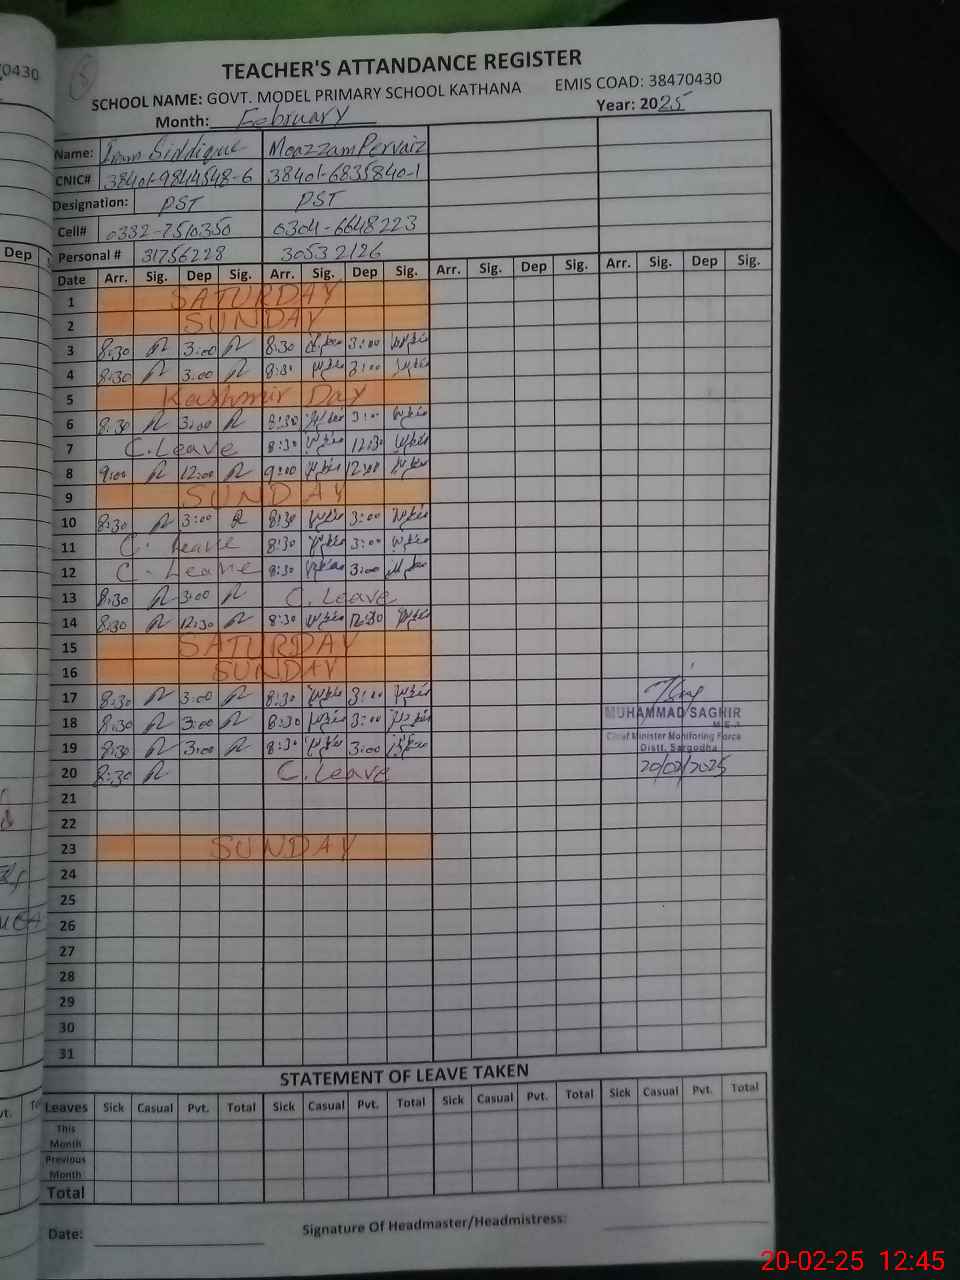 70430
5
TEACHER'S ATTANDANCE REGISTER
SCHOOL NAME: GOVT. MODEL PRIMARY SCHOOL KATHANA EMIS COAD: 38470430
Month: February Year: 2025
Name: Siddique Moazzam Pervaiz
CNIC# 38401-9844548-6 38401-6835840-1
Designation: PST PST
Cell# 0332-7510350 0304-6648223
Dep Personal # 31756228 30532126
Date Arr. Sig. Dep Sig. Arr. Sig. Dep Sig. Arr. Sig. Dep Sig. Arr. Sig. Dep Sig.
1 SATURDAY
2 SUNDAY
3 8:30 3:00 8:30 3:00
4 8:30 3:00 8:30 3:00
5 Kashmir Day
6 8:30 3:00 8:30 3:00
7 C.Leave 8:30 12:30
8 9:00 12:00 9:00 12:00
9 SUNDAY
10 8:30 3:00 8:30 3:00
11 C. Leave 8:30 3:00
12 C. Leave 8:30 3:00
13 8:30 3:00 C. Leave
14 8:30 12:30 8:30 12:30
15 SATURDAY
16 SUNDAY
17 8:30 3:00 8:30 3:00
18 8:30 3:00 8:30 3:00
19 8:30 3:00 8:30 3:00
20 8:30 C. Leave
MUHAMMAD SAGHIR
M.E.A
Chief Minister Monitoring Force
Distt. Sargodha
20/02/2025
21
22
23 SUNDAY
24
25
26
27
28
29
30
31
STATEMENT OF LEAVE TAKEN
Leaves Sick Casual Pvt. Total Sick Casual Pvt. Total Sick Casual Pvt. Total Sick Casual Pvt. Total
This Month
Previous Month
Total
Date: Signature Of Headmaster/Headmistress:
20-02-25 12:45